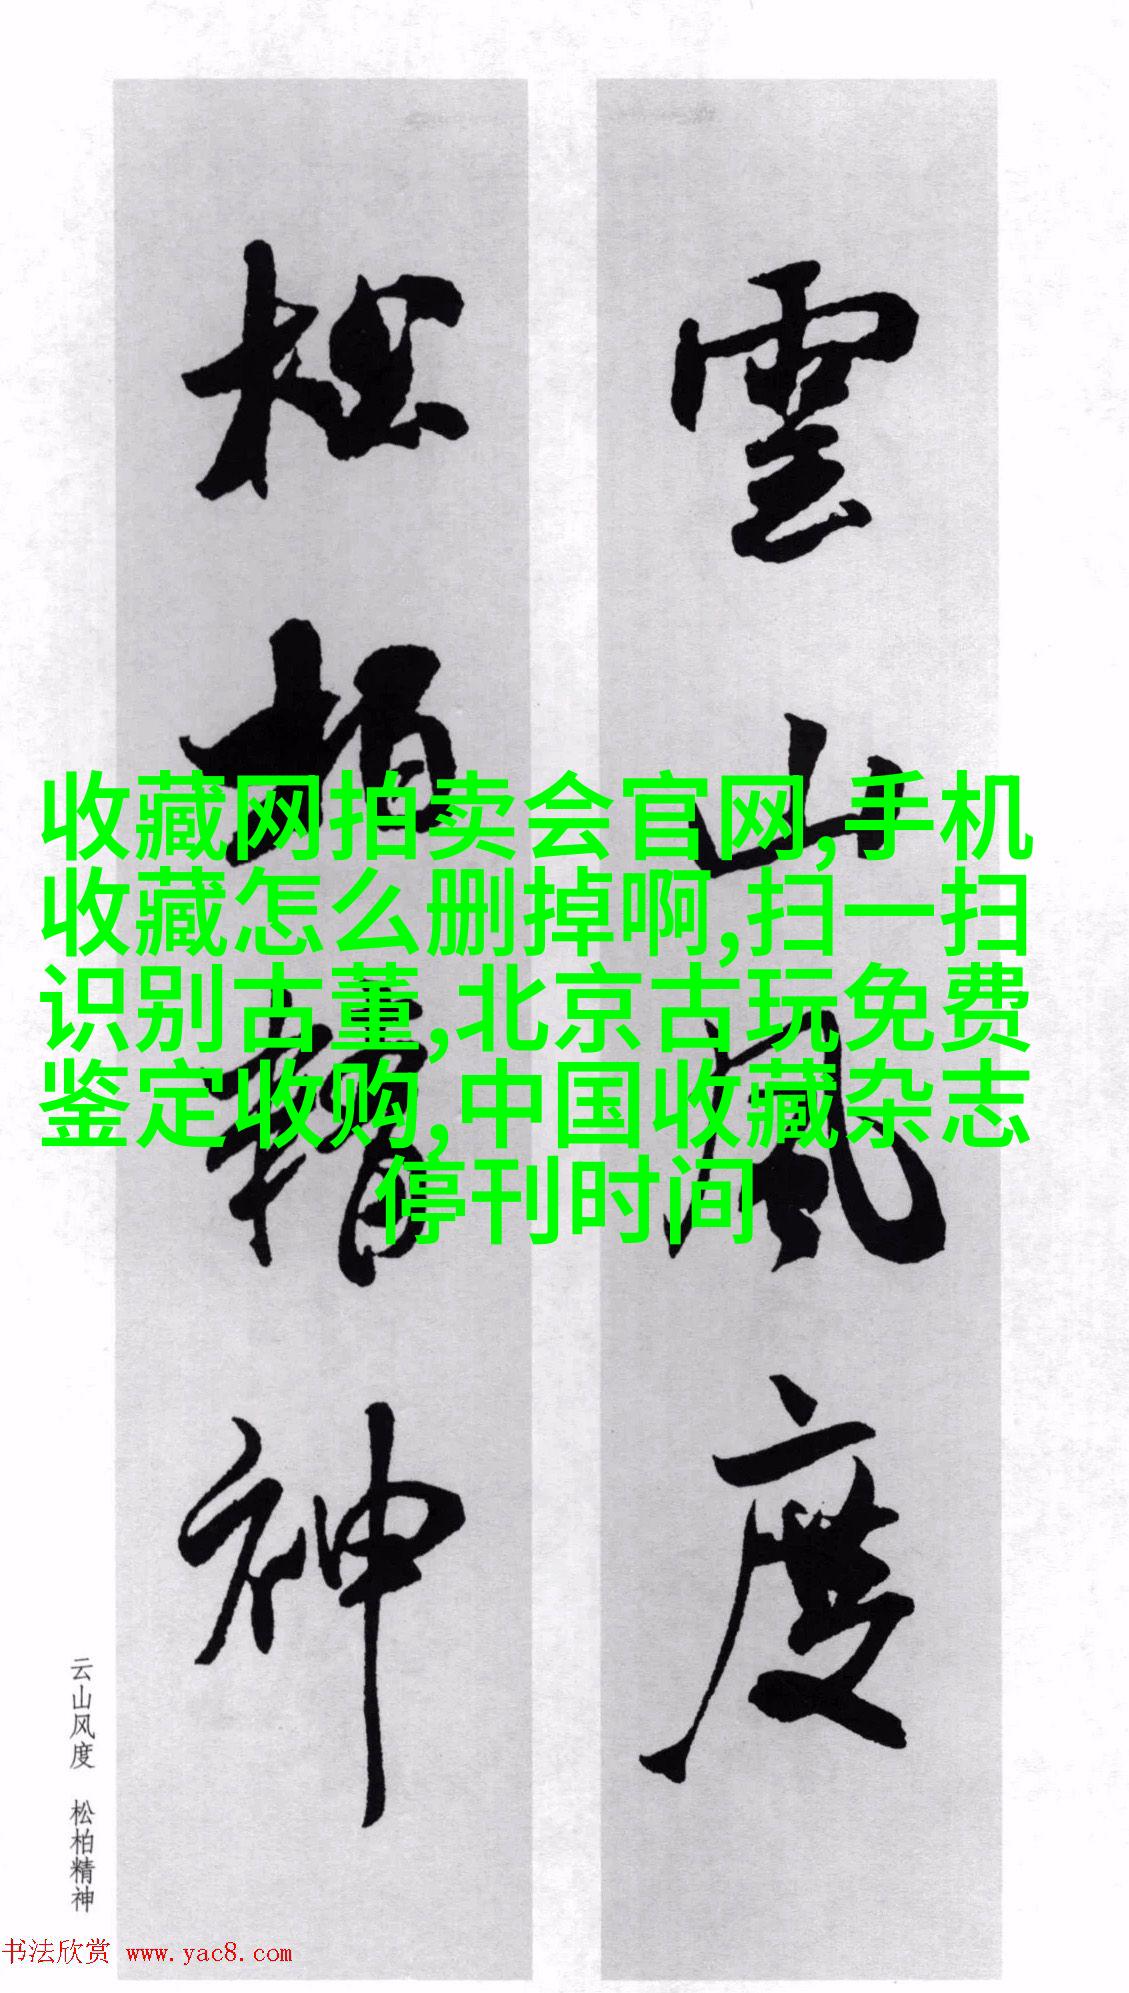 雲山風度
松柏精神
收藏网拍卖会官网,手机
收藏怎么删掉啊,扫一扫
识别古董,北京古玩免费
鉴定收购,中国收藏杂志
停刊时间
云山风度 松柏精神
书法欣赏 www.yac8.com